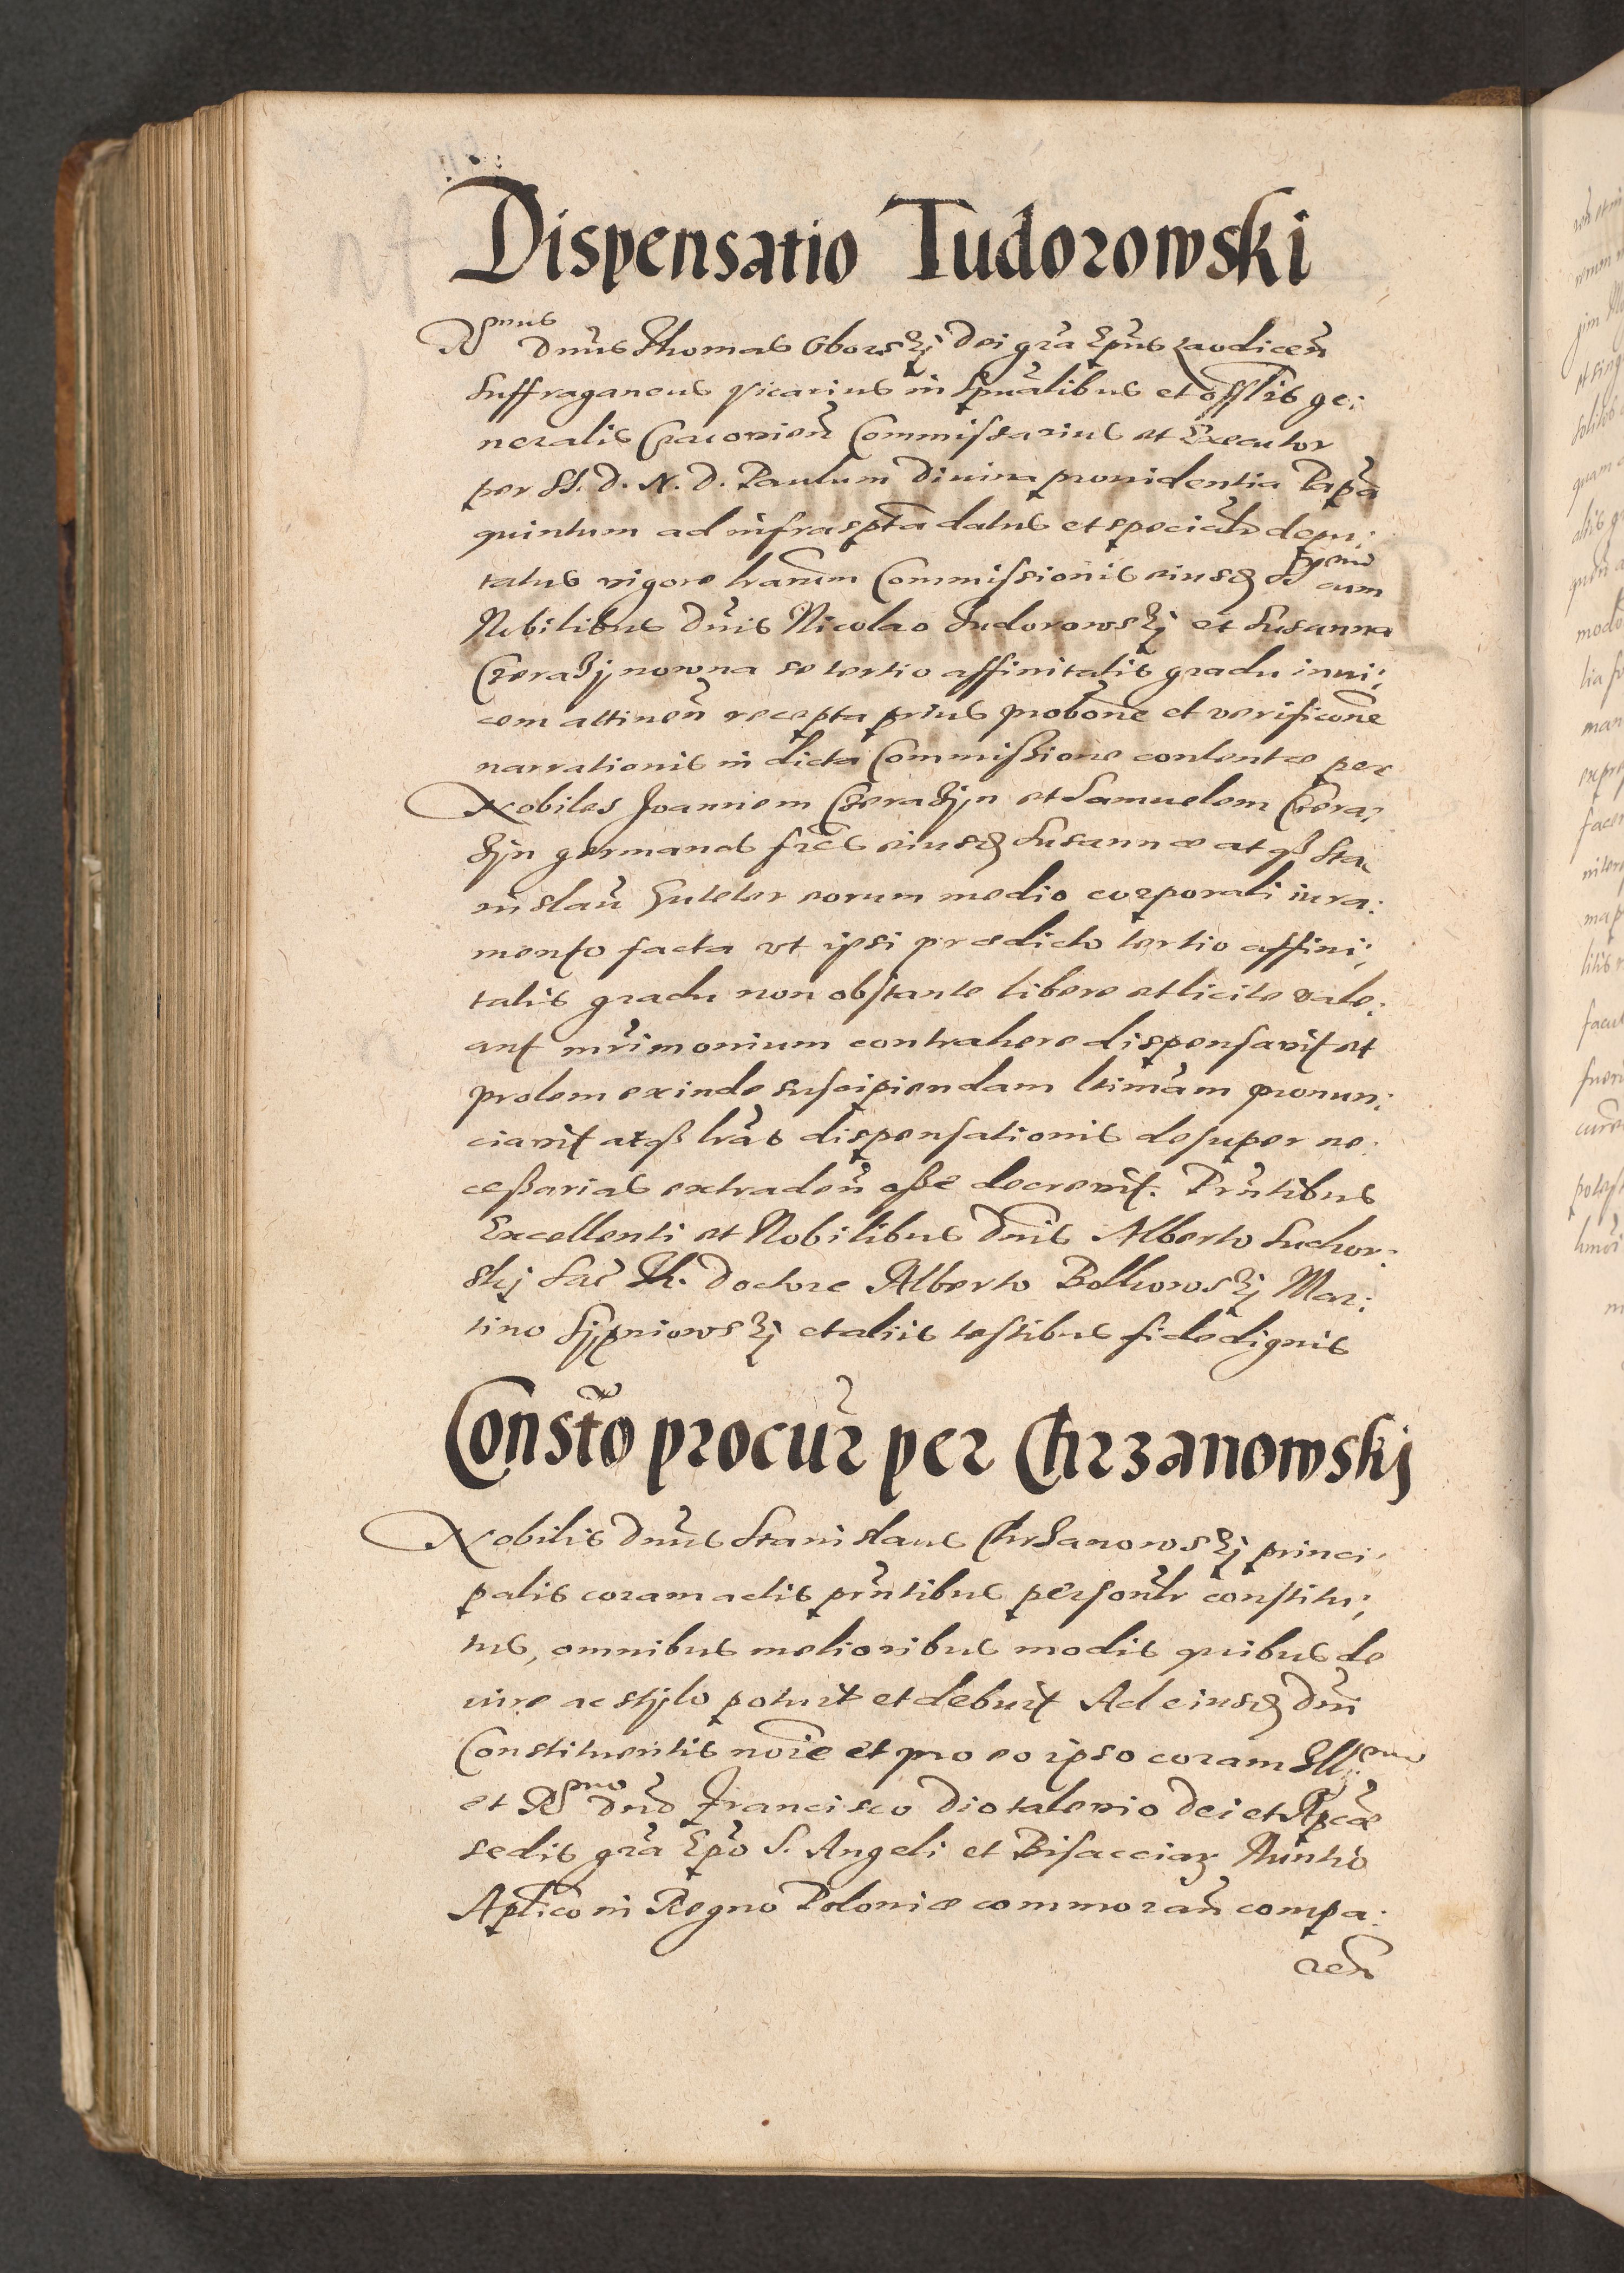 Dispensatio Tudorowski
R[mus] Dnus Thomas Oborskij Dei gra Epus Laodicen
Suffraganeus Vicarius in Spualibus et offlis ge:
neralis Cracovien Commissarius et Executor
per SS. D. N. D. Paulum Divina providentia Papa
quintum ad infraspta datus et specialr depu:
tatus vigore lrarum Commissionis eiusd SS[mi] cum
Nobilibus Dnis Nicolao Tudorowskij et Susanna
se tertio affinitatis gradu invi:
cem attinen recepta prius probone et verificone
narrationis in dicta Commissione contentæ per
Nobiles Joannem et Samuelem
germanos fres eiusd Susannæ atq Sta
nislau eorum medio corporali iura:
mento facta ut ipsi prædicto tertio affini:
tatis gradu non obstante libere et licite vale:
ant mrimonium contrahere dispensavit et
prolem exinde suscipiendam ltimam pronun:
ciavit atq lras dispensationis desuper ne:
cessarias extraden esse decrevit. Prntibus
Excellenti et Nobilibus Dnis Alberto Suchor:
skij Sac Th. Doctore Alberto Bolkowskij Mar:
tino Sypniowskij et aliis testibus fide dignis
Consto procur per Chrzanowskj
Nobilis Dnus Stanislaus Chrzanowskij princi:
palis coram actis prntibus personlr constitu:
tus, omnibus melioribus modis quibus de
iure ac stylo potuit et debuit Ad eiusd Dni
Constituentis noie et pro eo ipso coram Ill[mo]
et R[mo] Dno Francisco Diotalevio Dei et Apcæ
sedis gra Epo S. Angeli et Bisacciar Nuntio
Aplico in Regno Poloniæ commoran compa:
ren